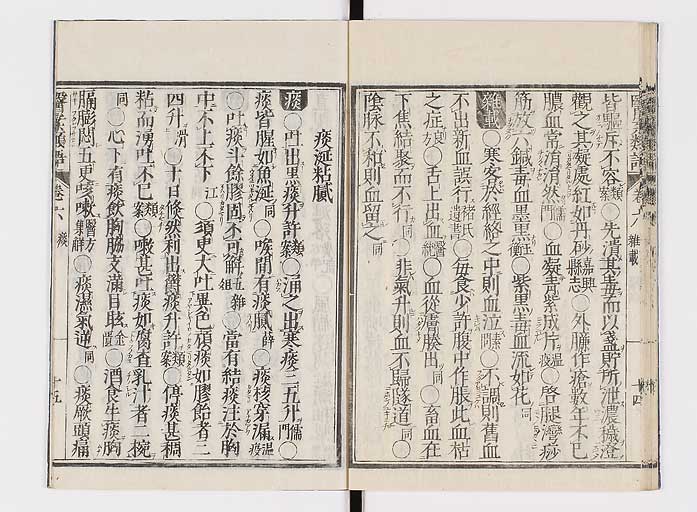 皆驅斥不容 類案 ○先潰其毒而以盞貯所泄濃穢澄
觀之其凝處紅如丹砂 嘉興縣志 ○外臁作瘡數年不已
膿血常涓涓然 儒門 ○血凝青紫成片 瘟疫 ○啓腿灣痧
筋放六鍼毒血墨黑 痧 ○紫黑毒血流如花 同
雜載 ○寒客於經絡之中則血泣 素問 ○不調則舊血
不出新血誤行 褚氏遺書 ○每食少許腹中作脹此血枯
之症 ○舌上出血 醫 ○血從齒縢出 同 ○畜血在
下焦結聚而不行 同 ○非氣升則血不歸隧道 同 ○
陰脉不和則血留之 同
痰涎粘膩
痰 ○吐出黑痰升許 類案 ○涌之出寒痰三五升 儒門 ○
痰皆腥如魚涎 同 ○喉間有痰膩 薛 ○痰核穿漏 瘟疫
○吐痰斗餘膠固不可解 五雜俎 ○當有結痰注於胸
中不上不下 江 ○須臾大吐異色頑痰如膠飴者三
四升 滑 ○十日倐然利出鬱痰升許 類案 ○停痰甚稠
粘而湧吐不已 類案 ○嗽甚吐痰如腐渣乳汁者二椀
同 ○心下有痰飲胸脇支滿目眩 金匱 ○酒食生痰胸
膈膨悶五更咳嗽 醫方集解 ○痰濕氣逆 同 ○痰厥頭痛
醫療類語 卷六 痰 十五
卷六 雜載 十四